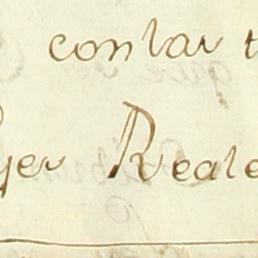 contar t
yer Reale